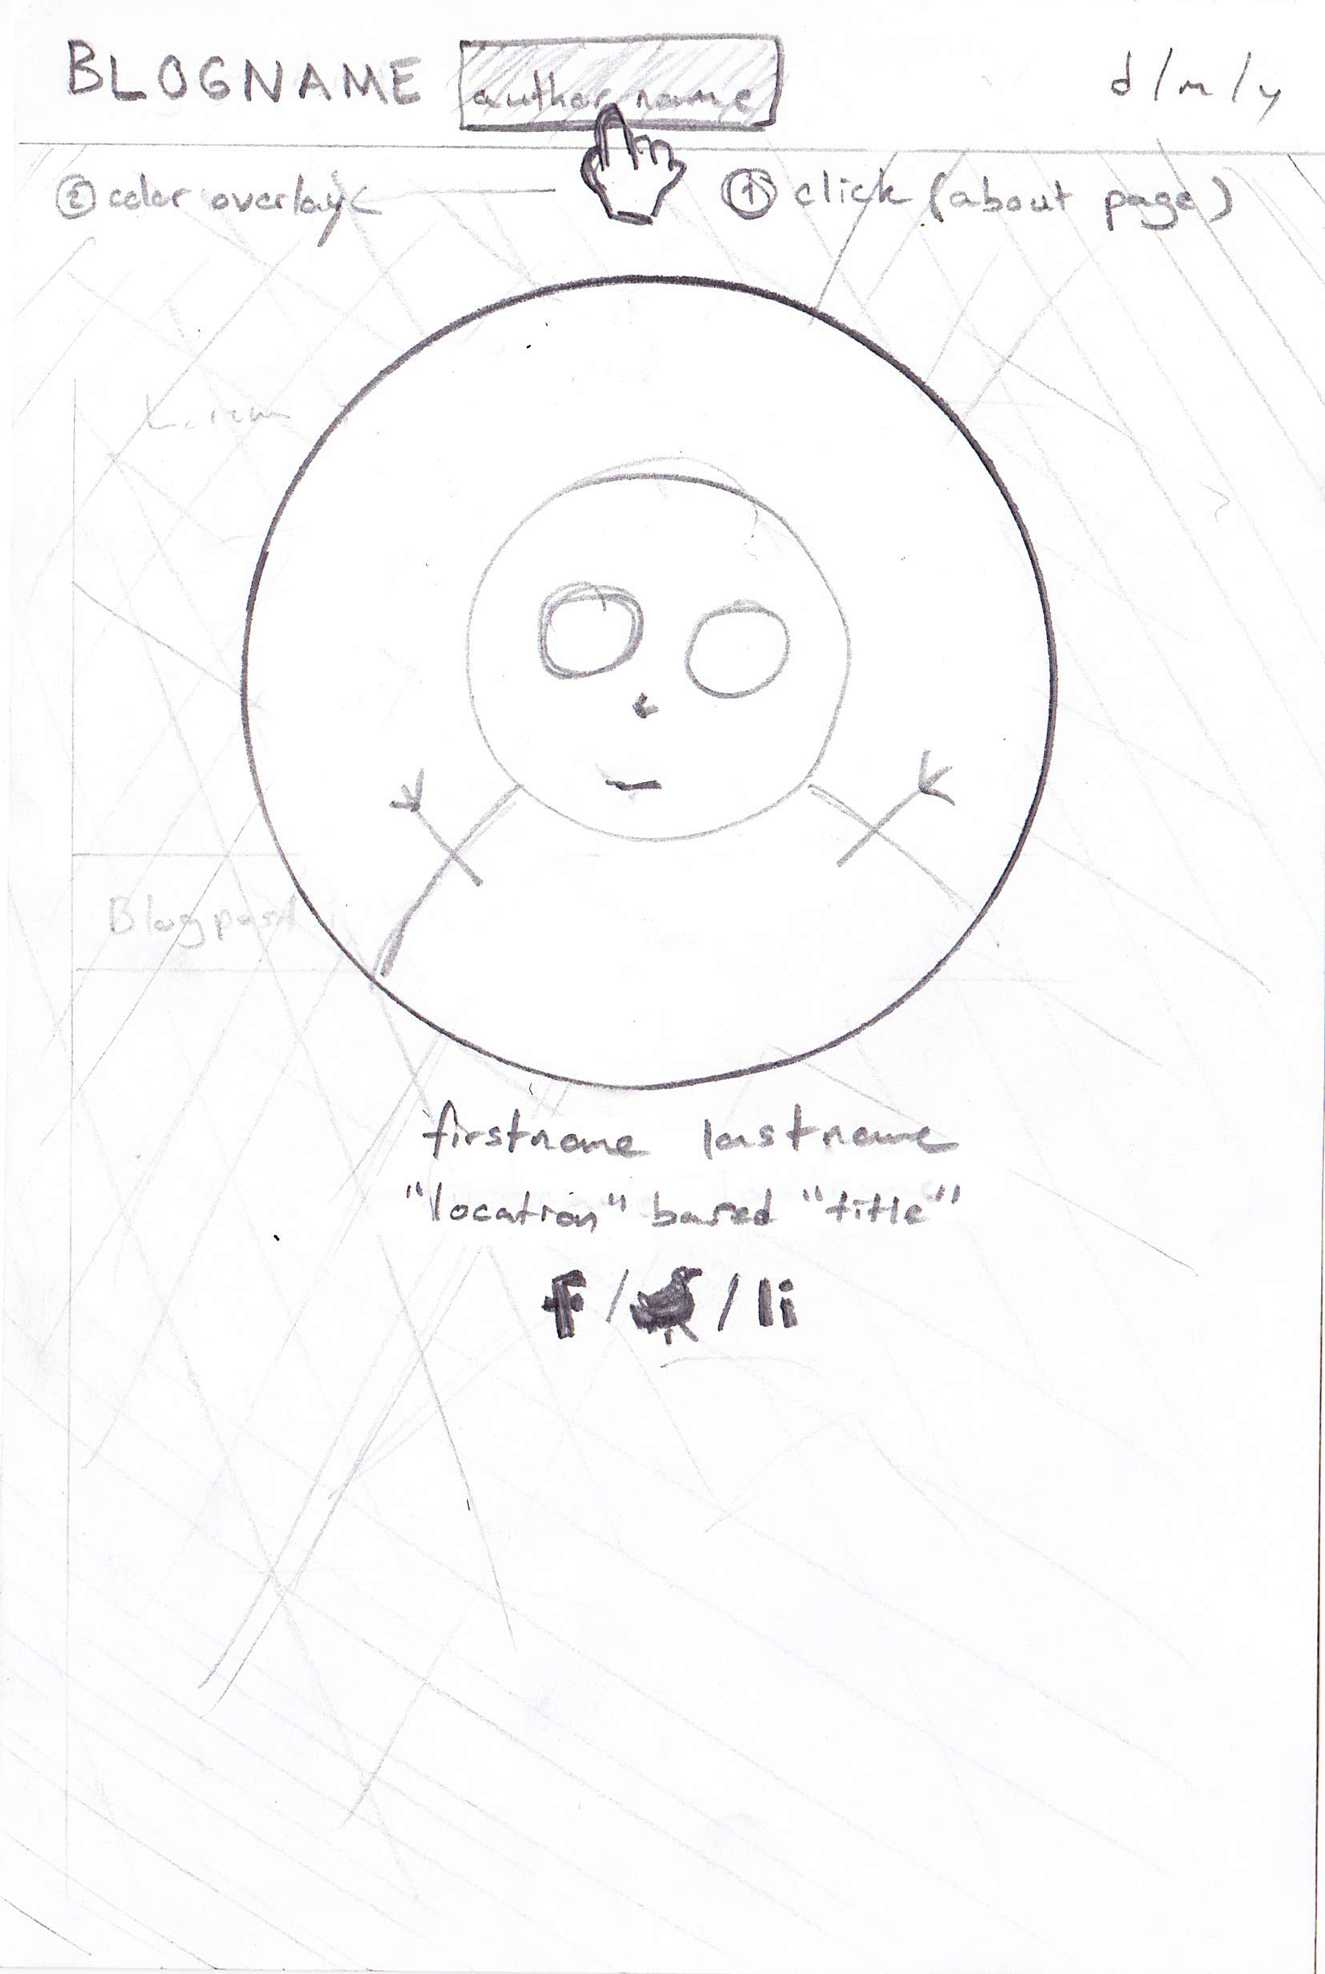 BLOGNAME author name d/m/y
② color overlay ① click (about page)
Blogpost
firstname lastname
"location" based "title"
f / / li